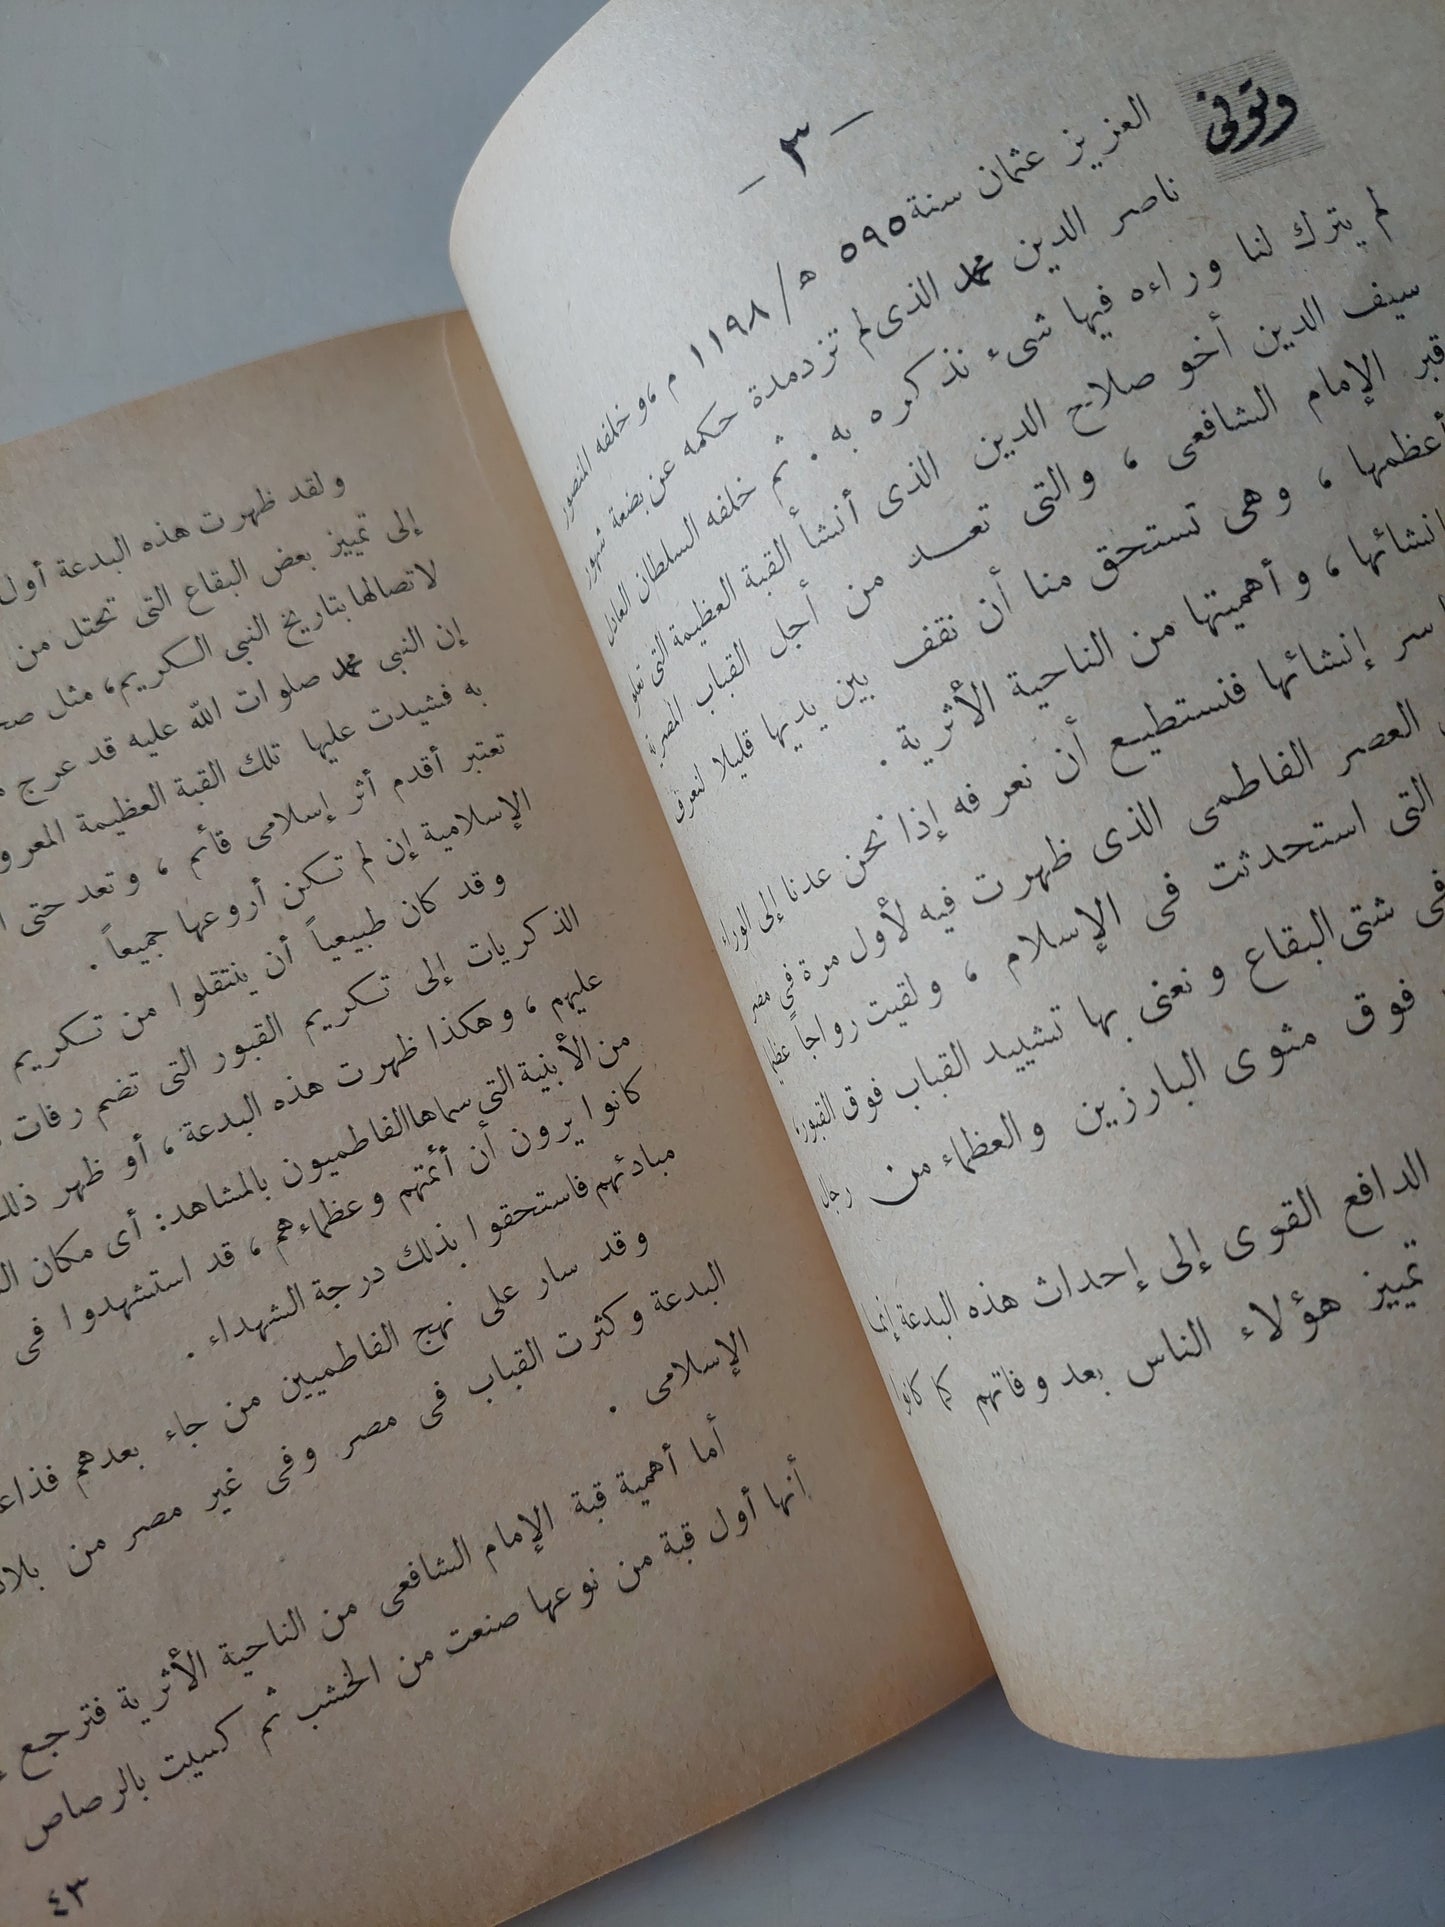 - ٣ -
وتوفى العزيز عثمان سنة ٥٩٥ ه / ١١٩٨ م ، وخلفه المنصور
ناصر الدين محمد الذى لم تزد مدة حكمه عن بضعة شهور
لم يترك لنا وراءه فيها شىء نذكره به . ثم خلفه السلطان العادل
سيف الدين أخو صلاح الدين الذى أنشأ القبة العظيمة التى تعلو
قبر الإمام الشافعى ، والتى تعد من أجل القباب المصرية
أعظمها ، وهى تستحق منا أن نقف بين يديها قليلا لنعرف
إنشائها ، وأهميتها من الناحية الأثرية .
سر إنشائها فنستطيع أن نعرفه إذا نحن عدنا إلى الوراء
العصر الفاطمى الذى ظهرت فيه لأول مرة فى مصر
التى استحدثت فى الإسلام ، ولقيت رواجاً عظيما
فى شتى البقاع ونعنى بها تشييد القباب فوق القبور،
فوق مثوى البارزين والعظماء من رجال
الدافع القوى إلى إحداث هذه البدعة إنما
تمييز هؤلاء الناس بعد وفاتهم كما كانوا
ولقد ظهرت هذه البدعة أول
إلى تمييز بعض البقاع التى تحتل من
لاتصالها بتاريخ النبى الكريم، مثل
إن النبى محمد صلوات الله عليه قد عرج
به فشيدت عليها تلك القبة العظيمة
تعتبر أقدم أثر إسلامى قائم ، وتعد حتى
الإسلامية إن لم تكن أروعها جميعاً .
وقد كان طبيعياً أن ينتقلوا من تكريم
الذكريات إلى تكريم القبور التى تضم رفات
عليهم ، وهكذا ظهرت هذه البدعة ، أو ظهر
من الأبنية التى سماها الفاطميون بالمشاهد: أى مكان
كانوا يرون أن أئمتهم وعظماءهم ، قد استشهدوا فى
مبادئهم فاستحقوا بذلك درجة الشهداء .
وقد سار على نهج الفاطميين من جاء بعدهم
البدعة وكثرت القباب فى مصر وفى غير مصر من
الإسلامى .
أما أهمية قبة الإمام الشافعى من الناحية الأثرية فترجع
أنها أول قبة من نوعها صنعت من الخشب ثم كسيت بالرصاص
٤٣